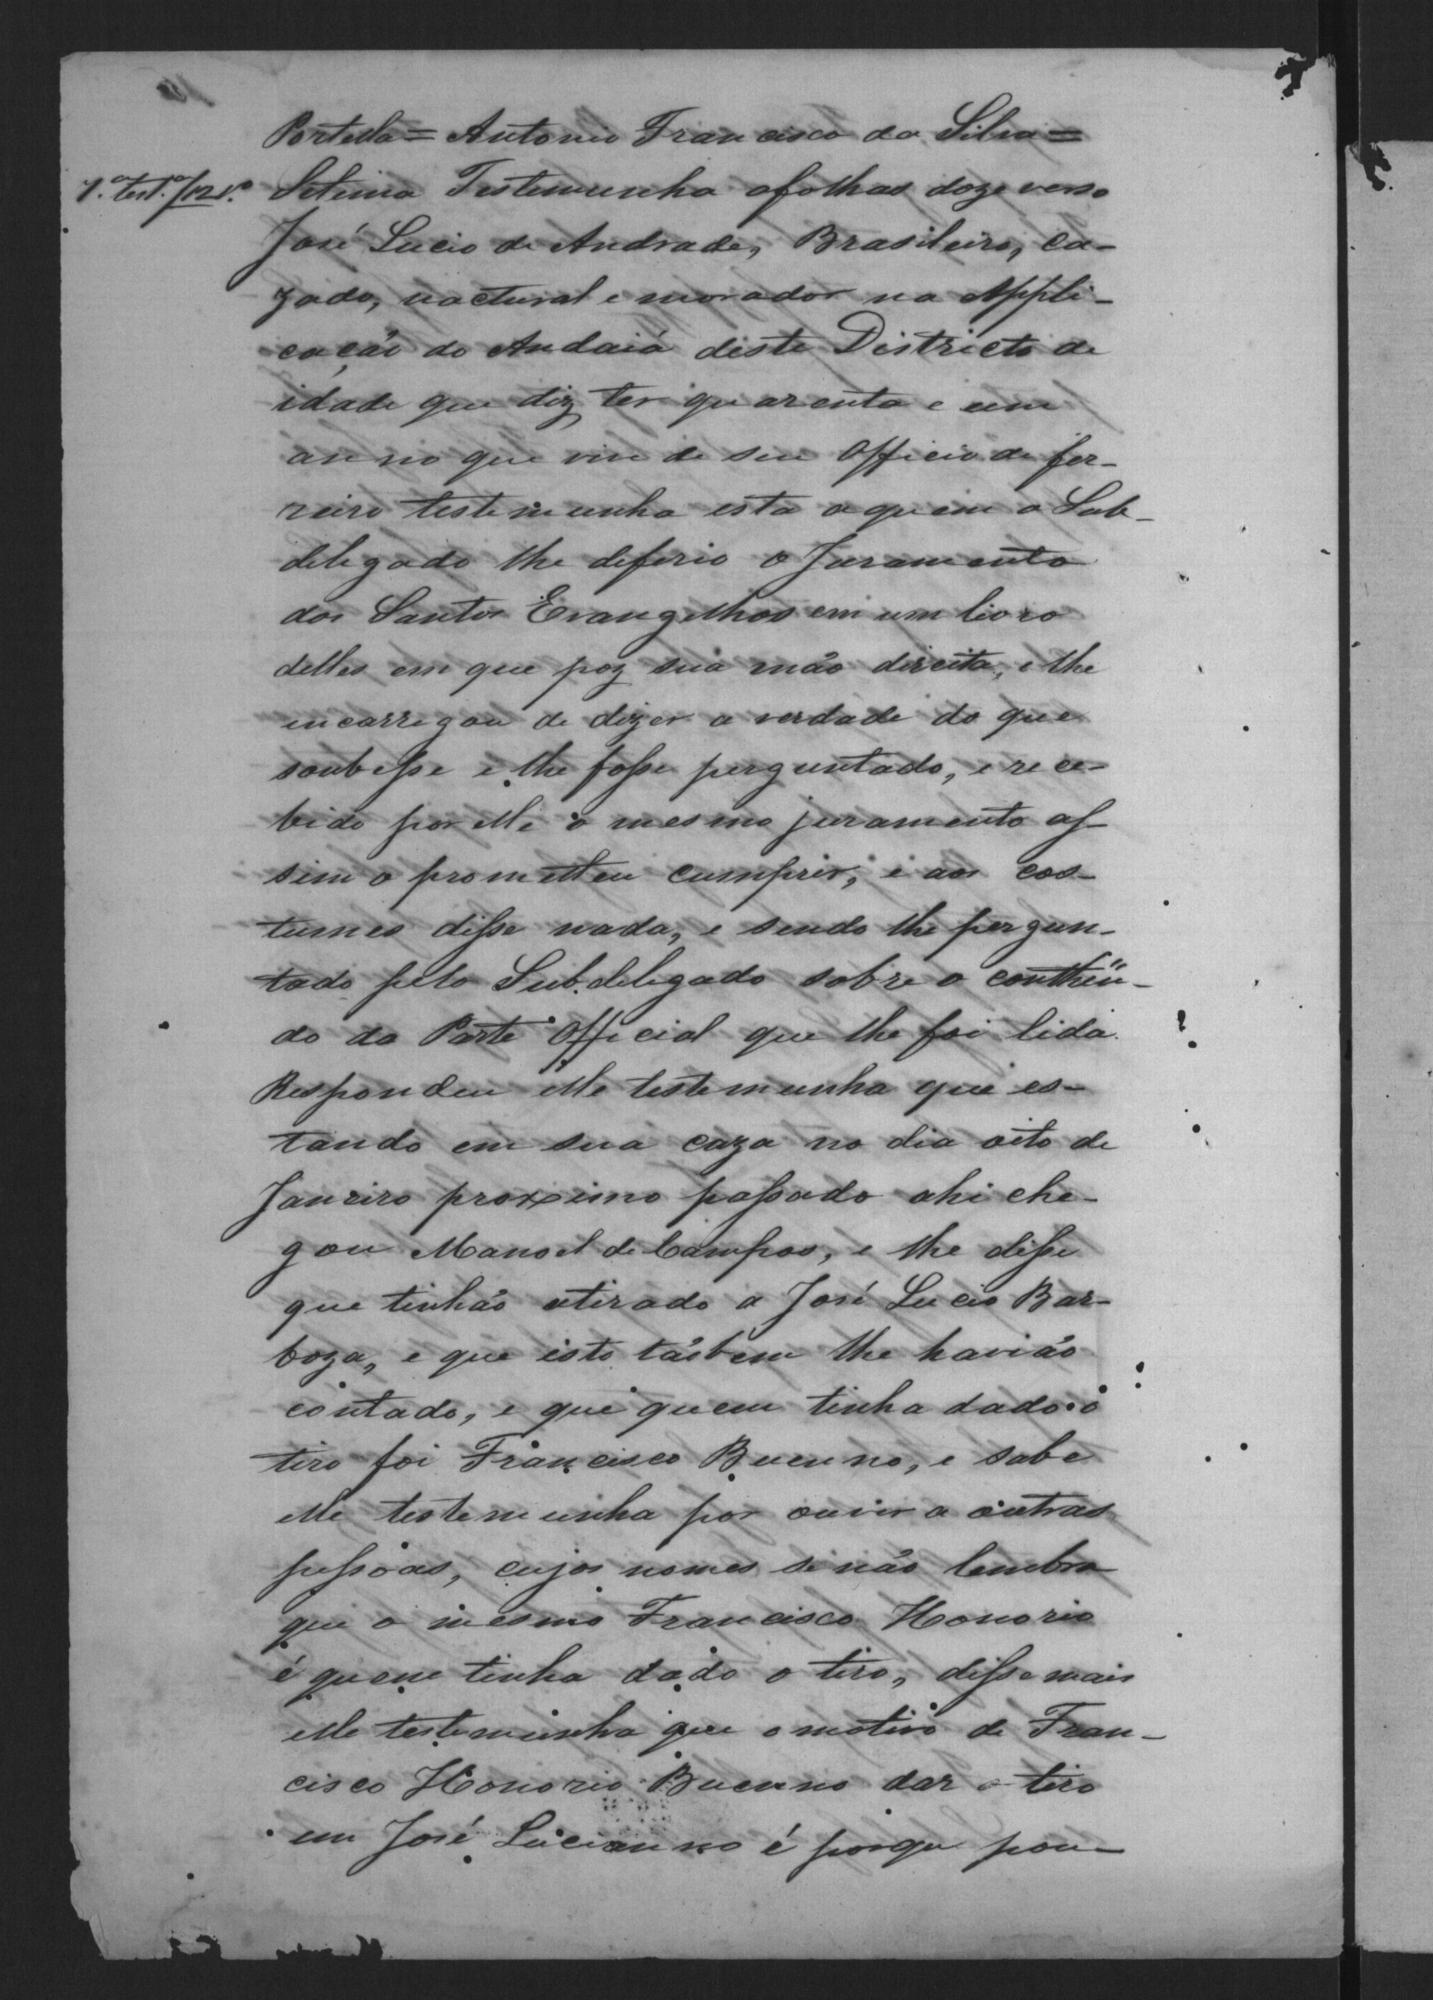 Portella = Antonio Francisco da Silva =
7.ª test.ª f 12 v.º
Setima Testemunha afolhas doze verso
José Lucio de Andrade, Brasileiro, ca-
zado, nactural e morador na Appli-
cação do Andaiá deste Districto de
idade que diz ter quarenta e um
anno que vive de seu Officio de fer-
reiro testemunha esta a quem o Sub-
delegado lhe deferio o Juramento
dos Santos Evangelhos em um livro
delles em que poz sua mão direita, e lhe
encarregou de dizer a verdade do que
soubesse e lhe fosse perguntado, e rece-
bido por elle o mesmo juramento as-
sim o prometteu cumprir, e aos cos-
tumes disse nada, e sendo lhe pergun-
tado pelo Subdelegado sobre o contheu-
do da Parte Official que lhe foi lida.
Respondeu elle testemunha que es-
tando em sua caza no dia oito de
Janeiro proximo passado ahi che-
gou Manoel de Campos, e lhe disse
que tinhão atirado a José Lucio Bar-
boza, e que isto tãobem lhe havião
contado, e que quem tinha dado o
tiro foi Francisco Bueuno, e sabe
elle testemunha por ouvir a outras
pessoas, cujos nomes se não lembra
que o mesmo Francisco Honorio
é quem tinha dado o tiro, disse mais
elle testemunha que o motivo de Fran-
cisco Honorio Bueuno dar o tiro
em José Lucianno é porque pou-